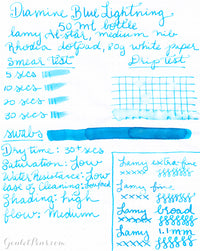 Diamine Blue Lightning
50 ml bottle
Lamy Al-Star, medium nib
Rhodia dotpad, 80g white paper
Smear test
Drip test
5 secs
10 secs
20 secs
30 secs
swabs
Dry time: 30+ secs
Saturation: Low
Water Resistance: Low
Ease of Cleaning:
Shading: high
flow: Medium
Lamy extra-fine
xxxxx
Lamy fine
xxxxx
Lamy broad
xxxx
Lamy 1.1mm
xxxx
GouletPens.com